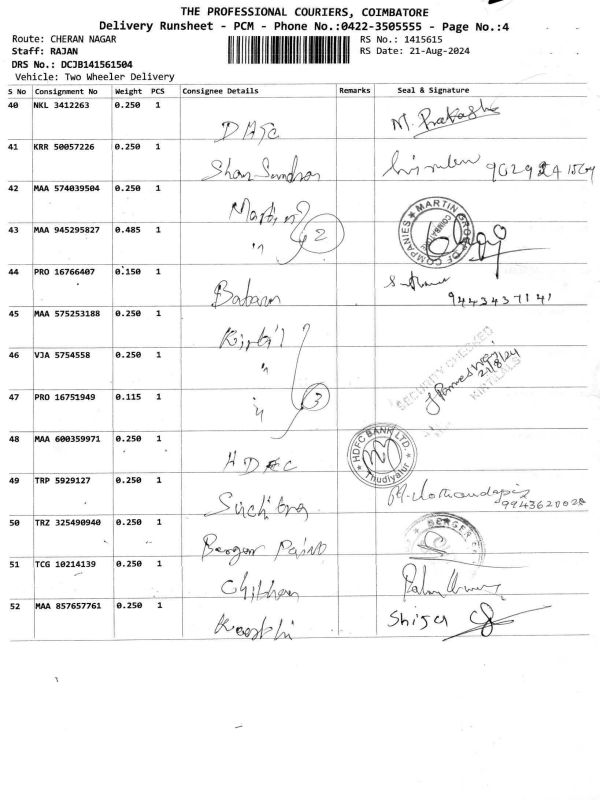 THE PROFESSIONAL COURIERS, COIMBATORE
Delivery Runsheet - PCM - Phone No.:0422-3505555 - Page No.:4
Route: CHERAN NAGAR RS No.: 1415615
Staff: RAJAN RS Date: 21-Aug-2024
DRS No.: DCJB141561504
Vehicle: Two Wheeler Delivery
S No Consignment No Weight PCS Consignee Details Remarks Seal & Signature
40 NKL 3412263 0.250 1 M. Prakash
41 KRR 50057226 0.250 1
42 MAA 574039504 0.250 1 Martin
43 MAA 945295827 0.485 1 " 2 MARTIN GROUP OF COMPANIES COIMBATORE
44 PRO 16766407 0.150 1 9443437141
45 MAA 575253188 0.250 1
46 VJA 5754558 0.250 1 " SECURITY CHECKED 21/8/24
47 PRO 16751949 0.115 1 " 3
48 MAA 600359971 0.250 1 HDFC HDFC BANK LTD Thudiyalur
49 TRP 5929127 0.250 1 9943620028
50 TRZ 325490940 0.250 1 Berger Paint BERGER
51 TCG 10214139 0.250 1
52 MAA 857657761 0.250 1